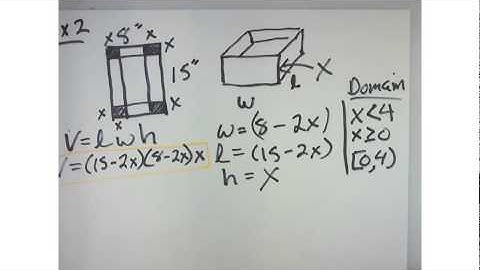 x 2
x 8" x
15"
x x
x
V = l w h
V = (15-2x)(8-2x)x
x
l
w
w = (8-2x)
l = (15-2x)
h = x
Domain
x<4
x≥0
[0,4)